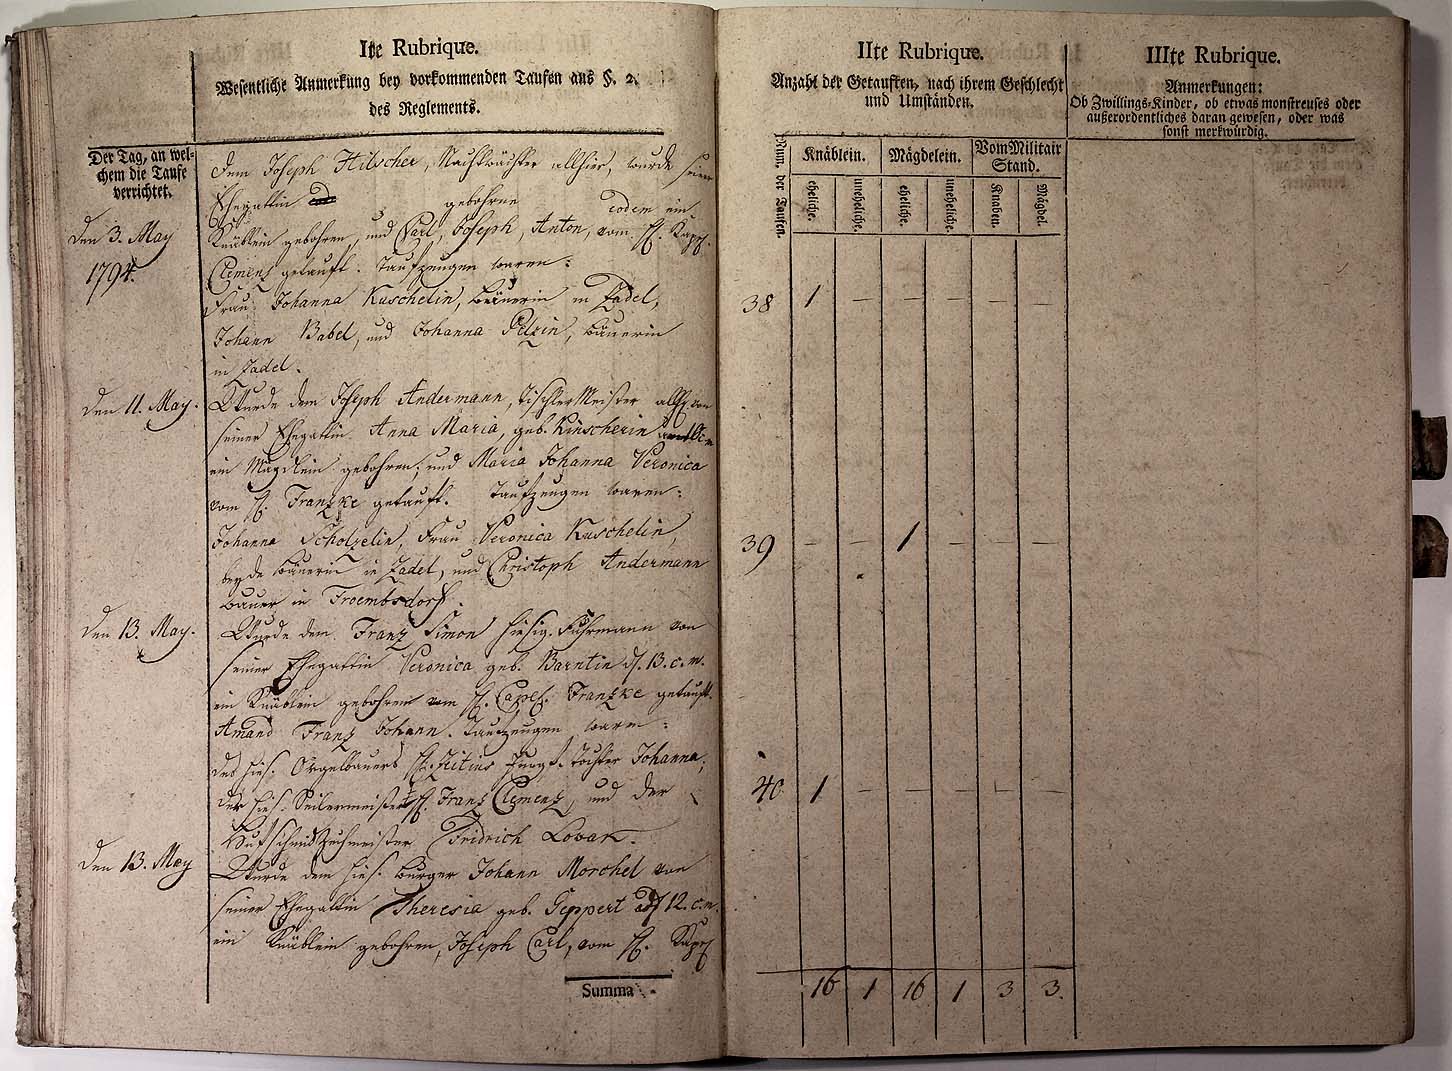 Ite Rubrique.
Wesentliche Anmerkung bey vorkommenden Taufen aus §. 2.
des Reglements.
Der Tag, an wel-
chem die Taufe
verrichtet.
Den 3. May
1794.
Dem Joseph Hilscher, allhier, wurde seiner
Ehegattin gebohrne eodem ein
Knäblein gebohren, und Carl, Joseph, Anton, vom H. Kapl.
Clemenz getauft. Taufzeugen waren:
Frau Johanna Kuschelin, Bäuerin in Zadel,
Johann Babel, und Johanna Pelzin, Bäuerin
in Zadel.
Den 11. May.
Wurde dem Joseph Andermann, Tischler Meister allh. von
seiner Ehegattin Anna Maria, geb. Kinscherin
ein Mägdlein gebohren, und Maria Johanna Veronica
vom H. Franzke getauft. Taufzeugen waren:
Johanna Scholzelin, Frau Veronica Kuschelin,
beyde Bäuerin in Zadel, und Christoph Andermann
Bauer in Froembsdorf.
Den 13. May.
Wurde dem Franz Simon hiesig. Fuhrmann von
seiner Ehegattin Veronica geb. Barntin d. 13. c. m.
ein Knäblein gebohren vom H. Capel. Franzke getauft.
Amand Franz Johann. Taufzeugen waren:
des hies. Orgelbauers H. Zitius Jungf. Tochter Johanna,
der hies. Seilermeister H. Franz Clemenz, und der
Hufschmidt Zechmeister Fridrich Lovak.
Den 13. May
Wurde dem hies. Bürger Johann Morchel von
seiner Ehegattin Theresia geb. Geppert d 12. c. m.
ein Knäblein gebohren, Joseph Carl, vom H. Kapl
Summa
IIte Rubrique.
Anzahl der Getauften, nach ihrem Geschlecht
und Umständen.
Num. der Taufen.
Knäblein.
Mägdelein.
Vom Militair
Stand.
eheliche.
uneheliche.
eheliche.
uneheliche.
Knaben.
Mägdel.
38 1 — — — — —
39 — — 1 — — —
40 1 — — — — —
16 1 16 1 3 3.
IIIte Rubrique.
Anmerkungen:
Ob Zwillings-Kinder, ob etwas monstreuses oder
außerordentliches daran gewesen, oder was
sonst merkwürdig.